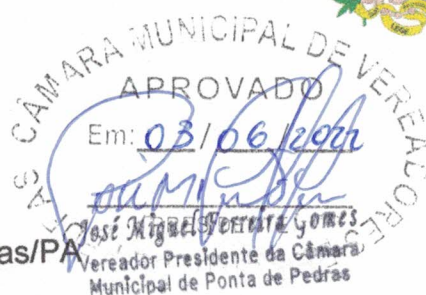 CÂMARA MUNICIPAL DE VEREADORES
APROVADO
Em: 03/06/2022
José Miguel Ferreira Gomes
as/PA
Vereador Presidente da Câmara
Municipal de Ponta de Pedras